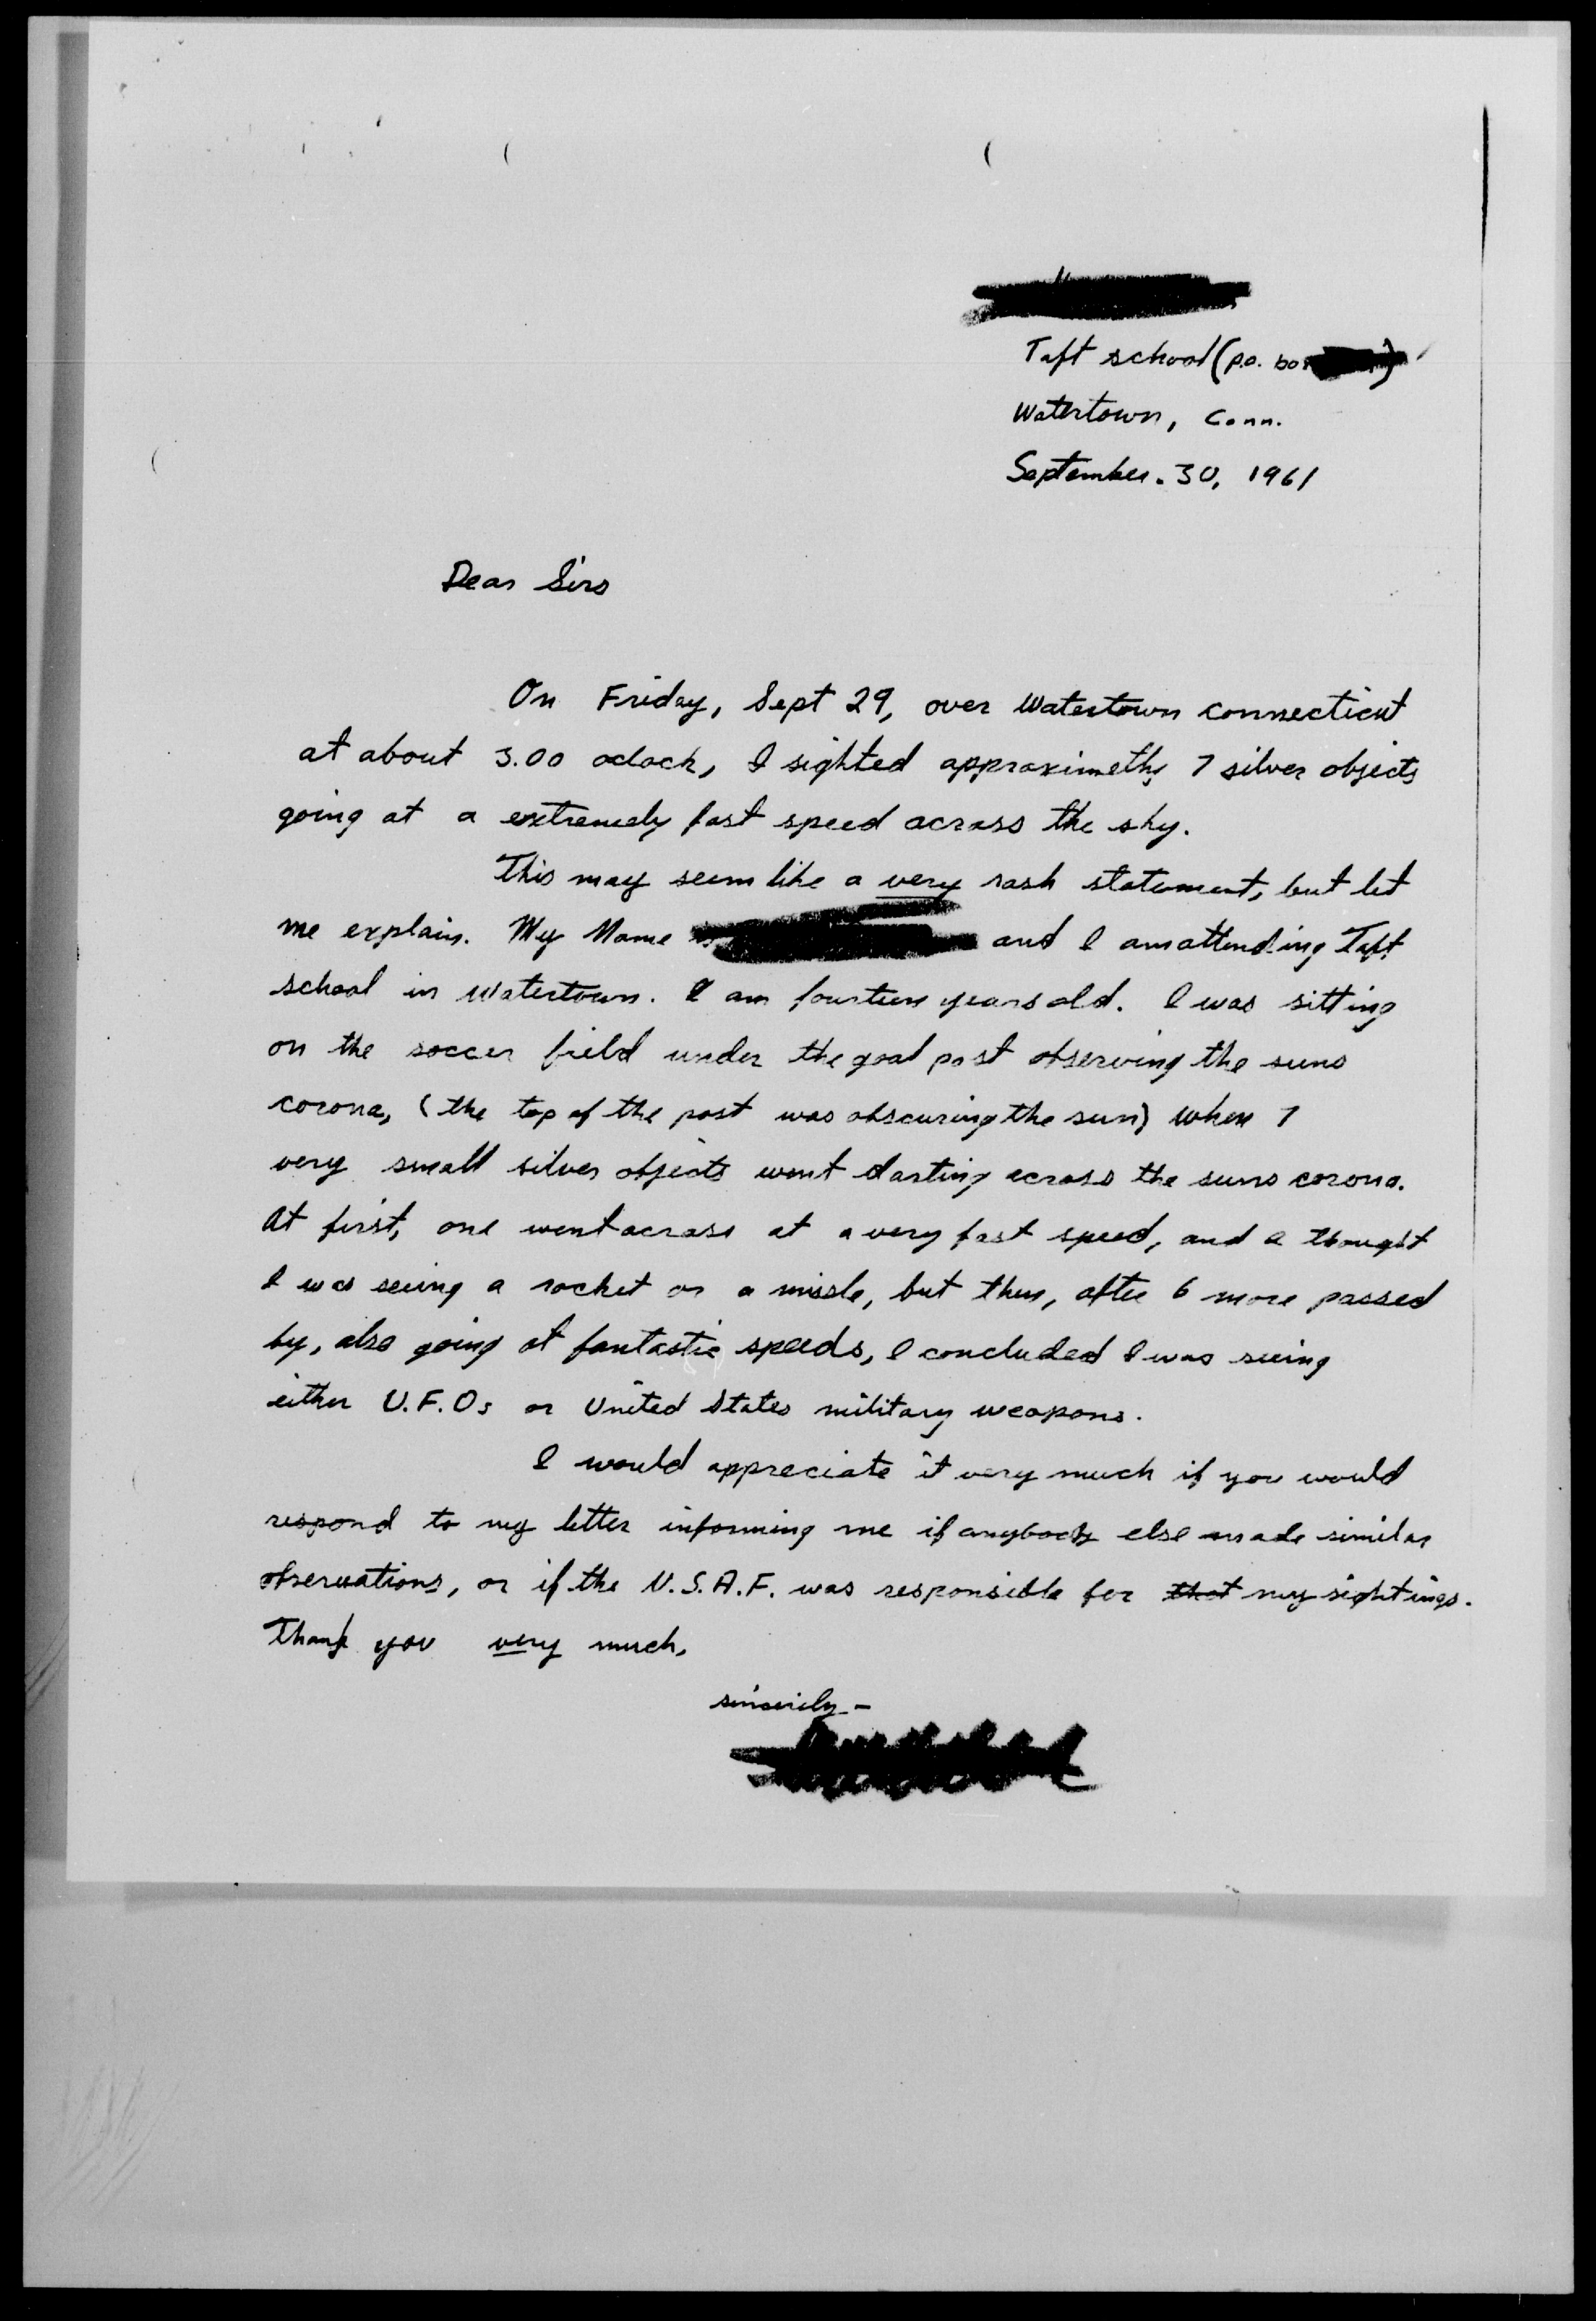 Taft school (P.O. box
Watertown, Conn.
September. 30, 1961
Dear Sirs
On Friday, Sept 29, over Watertown connecticut
at about 3.00 oclock, I sighted approximetly 7 silver objects
going at a extremely fast speed across the sky.
This may seem like a very rash statement, but let
me explain. My Name is and I am attending Taft
school in Watertown. I am fourteen years old. I was sitting
on the soccer field under the goal post observing the suns
corona, (the top of the post was obscuring the sun) when 7
very small silver objects went darting across the suns corona.
At first, one went across at a very fast speed, and I thought
I was seeing a rocket or a missle, but then, after 6 more passed
by, also going at fantastic speeds, I concluded I was seeing
either U.F.Os or United States military weapons.
I would appreciate it very much if you would
respond to my letter informing me if anybody else made similar
observations, or if the U.S.A.F. was responsible for that my sightings.
Thank you very much,
sincerily -